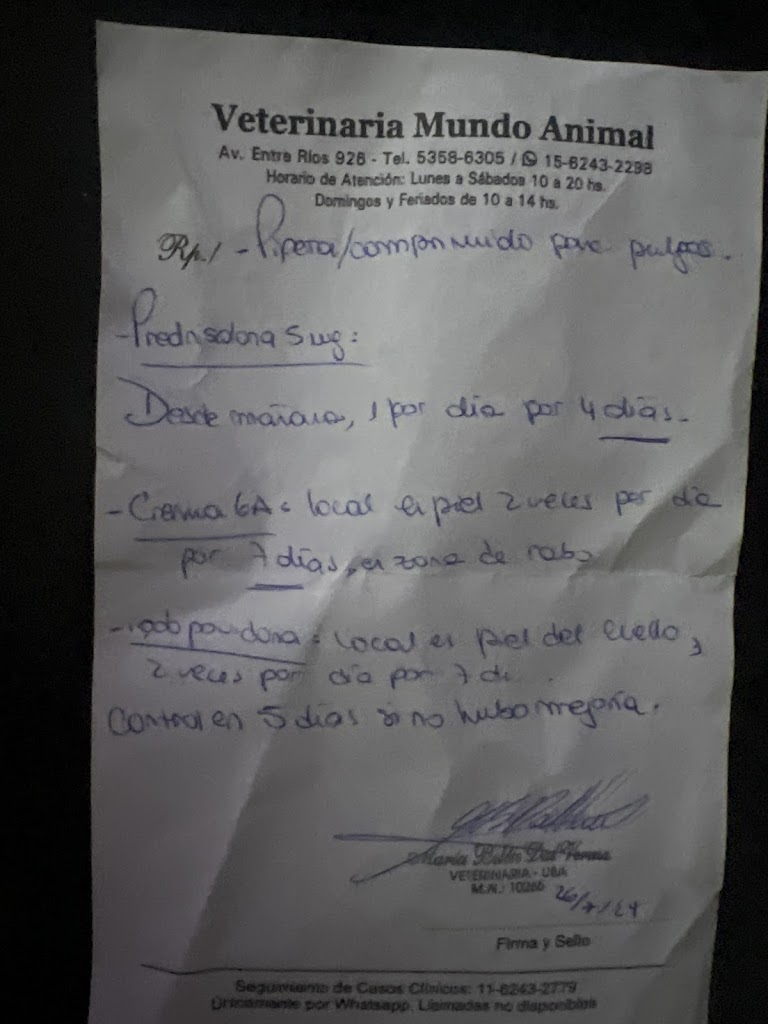 Veterinaria Mundo Animal
Av. Entre Rios 926 - Tel. 5358-6305 / 15-6243-2298
Horario de Atención: Lunes a Sábados 10 a 20 hs.
Domingos y Feriados de 10 a 14 hs.
Rp./ - Pipeta/comprimido para pulgas.
- Prednisolona 5 mg:
Desde mañana, 1 por día por 4 días.
- Crema 6A: local en piel 2 veces por día
por 7 días, en zona de rabo
- iodo povidona: local en piel del cuello,
2 veces por día por 7 di.
Control en 5 días si no hubo mejoría.
María Belén
VETERINARIA - UBA
M.N.: 10266
26/7/24
Firma y Sello
Seguimiento de Casos Clínicos: 11-6243-2779
Únicamente por Whatsapp. Llamadas no disponibles